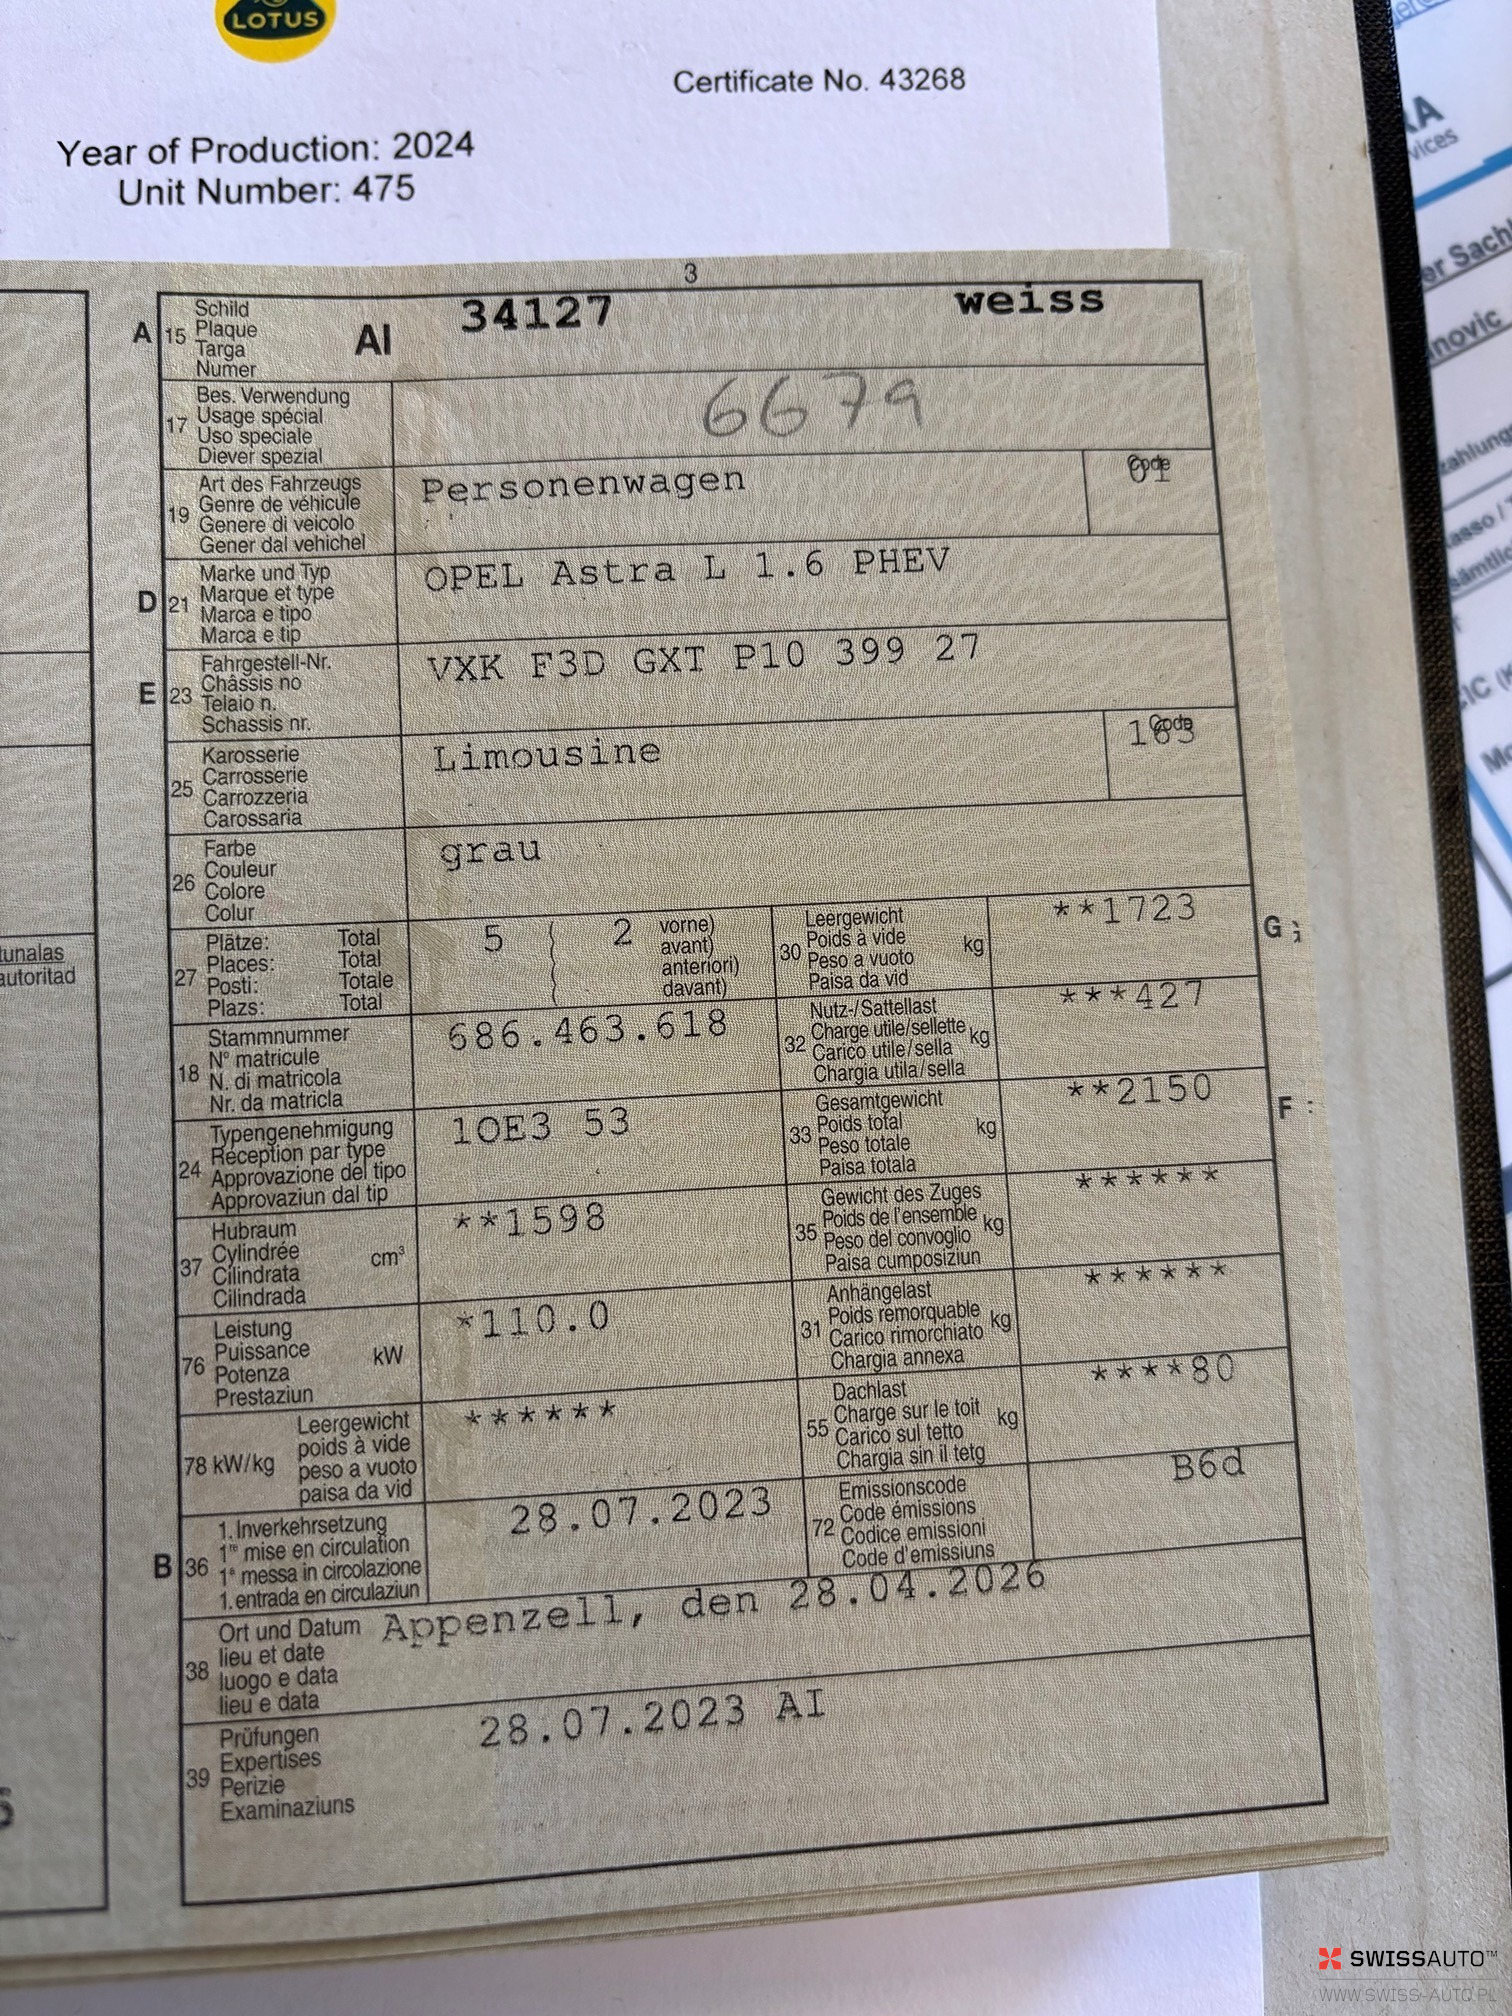 LOTUS
Certificate No. 43268
Year of Production: 2024
Unit Number: 475
3
A 15 Schild AI 34127 weiss
Plaque
Targa
Numer
17 Bes. Verwendung 6679
Usage spécial
Uso speciale
Diever spezial
19 Art des Fahrzeugs Personenwagen Code 01
Genre de véhicule
Genere di veicolo
Gener dal vehichel
D 21 Marke und Typ OPEL Astra L 1.6 PHEV
Marque et type
Marca e tipo
Marca e tip
E 23 Fahrgestell-Nr. VXK F3D GXT P10 399 27
Châssis no
Telaio n.
Schassis nr.
25 Karosserie Limousine Code
Carrosserie
Carrozzeria
Carossaria
26 Farbe grau
Couleur
Colore
Colur
27 Plätze: Total 5 2 vorne)
Places: Total avant)
Posti: Totale anteriori)
Plazs: Total davant)
30 Leergewicht kg **1723
Poids à vide
Peso a vuoto
Paisa da vid
G
18 Stammnummer 686.463.618
N° matricule
N. di matricola
Nr. da matricla
32 Nutz-/Sattellast kg ***427
Charge utile/sellette
Carico utile/sella
Chargia utila/sella
24 Typengenehmigung 1OE3 53
Réception par type
Approvazione del tipo
Approvaziun dal tip
33 Gesamtgewicht kg **2150
Poids total
Peso totale
Paisa totala
F
37 Hubraum cm³ **1598
Cylindrée
Cilindrata
Cilindrada
35 Gewicht des Zuges kg ******
Poids de l'ensemble
Peso del convoglio
Paisa cumposiziun
76 Leistung kW *110.0
Puissance
Potenza
Prestaziun
31 Anhängelast kg ******
Poids remorquable
Carico rimorchiato
Chargia annexa
78 kW/kg Leergewicht ******
poids à vide
peso a vuoto
paisa da vid
55 Dachlast kg ****80
Charge sur le toit
Carico sul tetto
Chargia sin il tetg
B 36 1. Inverkehrsetzung 28.07.2023
1re mise en circulation
1a messa in circolazione
1. entrada en circulaziun
72 Emissionscode B6d
Code émissions
Codice emissioni
Code d'emissiuns
38 Ort und Datum Appenzell, den 28.04.2026
lieu et date
luogo e data
lieu e data
39 Prüfungen 28.07.2023 AI
Expertises
Perizie
Examinaziuns
tunalas
autoritad
vices
er Sach
novic
SWISSAUTO™
WWW.SWISS-AUTO.PL